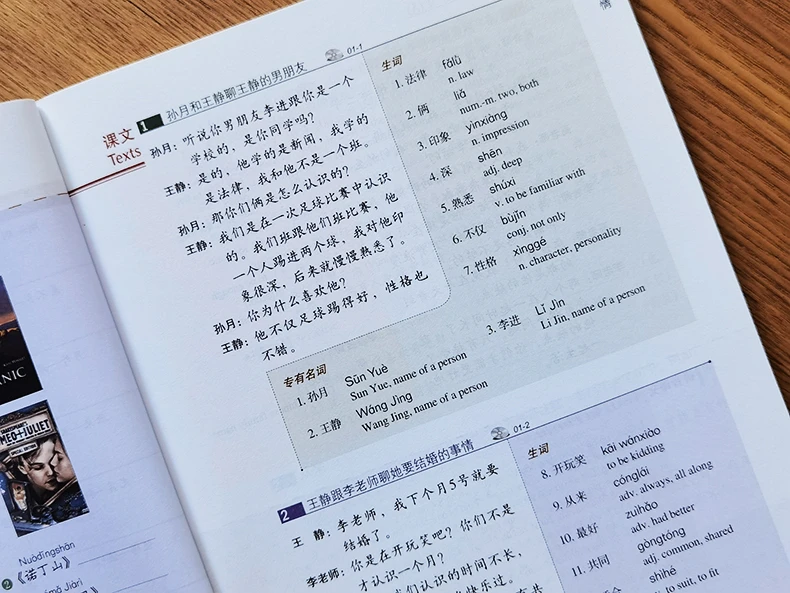 课文
Texts
1 孙月和王静聊王静的男朋友 01-1
孙月：听说你男朋友李进跟你是一个
学校的，是你同学吗？
王静：是的，他学的是新闻，我学的
是法律，我和他不是一个班。
孙月：那你们俩是怎么认识的？
王静：我们是在一次足球比赛中认识
的。我们班跟他们班比赛，他
一个人踢进两个球，我对他印
象很深，后来就慢慢熟悉了。
孙月：你为什么喜欢他？
王静：他不仅足球踢得好，性格也
不错。
生词
1. 法律 fǎlǜ
n. law
2. 俩 liǎ
num.-m. two, both
3. 印象 yìnxiàng
n. impression
4. 深 shēn
adj. deep
5. 熟悉 shúxi
v. to be familiar with
6. 不仅 bùjǐn
conj. not only
7. 性格 xìnggé
n. character, personality
专有名词
1. 孙月 Sūn Yuè
Sun Yue, name of a person
2. 王静 Wáng Jìng
Wang Jing, name of a person
3. 李进 Lǐ Jìn
Li Jin, name of a person
2 王静跟李老师聊她要结婚的事情 01-2
王 静：李老师，我下个月5号就要
结婚了。
李老师：你是在开玩笑吧？你们不是
才认识一个月？
我们认识的时间不长，
快乐过。
生词
8. 开玩笑 kāi wánxiào
to be kidding
9. 从来 cónglái
adv. always, all along
10. 最好 zuìhǎo
adv. had better
11. 共同 gòngtóng
adj. common, shared
shìhé
to suit, to fit
NIC
MEO+JULIET
SPECIAL EDITION
Nuòdīngshān
2 《诺丁山》
Jiàrì